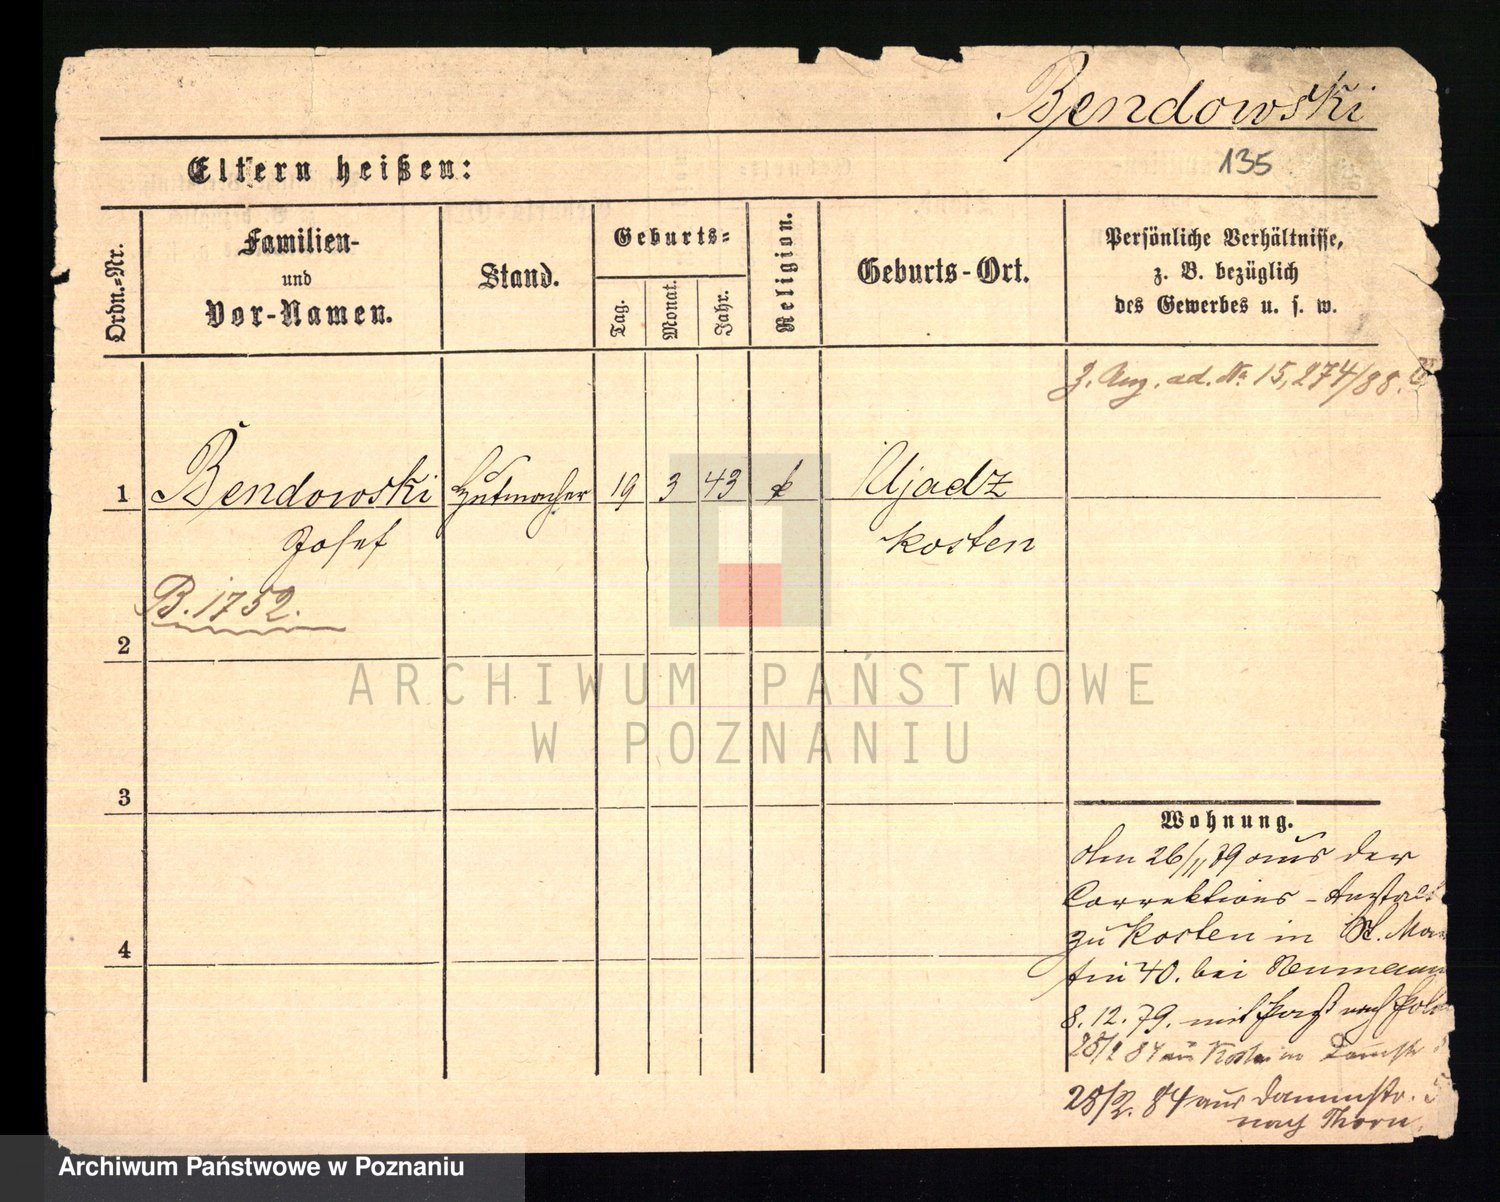 Bendowski
135
Eltern heißen:
Ordn.-Nr.
Familien-
und
Vor-Namen.
Stand.
Geburts-
Tag.
Monat.
Jahr.
Religion.
Geburts-Ort.
Persönliche Verhältnisse,
z. B. bezüglich
des Gewerbes u. s. w.
ad. No 15,274/88.
1
Bendowski
Hutmacher
19
3
43
k
Ujadz
Josef
Kosten
B. 1752.
2
ARCHIWUM PAŃSTWOWE
W POZNANIU
3
Wohnung.
Am 26/11 79 aus der
Correktions-Anstalt
zu Kosten in St. Mar
tin 40. bei Neumann
8.12.79. mit Paß nach Pol
28/2 84 aus Kosten in Dammstr
4
28/2. 84 aus Dammstr. 5
nach Thorn.
Archiwum Państwowe w Poznaniu